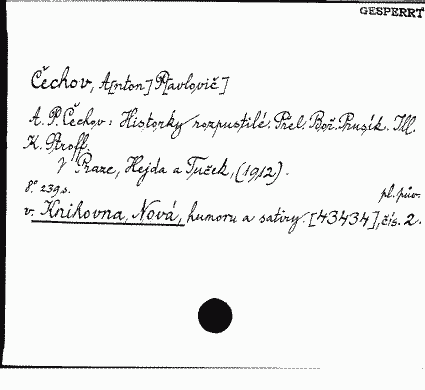 GESPERRT
Čechov, A[nton] P[avlovič]
A. P. Čechov: Historky rozpustilé. Přel. Boř. Prusík. Ill.
K. Stroff.
V Praze, Hejda a Tuček, (1912).
8° 239 s. pl. pův.
v. Knihovna, Nová, humoru a satiry. [43434], čís. 2.